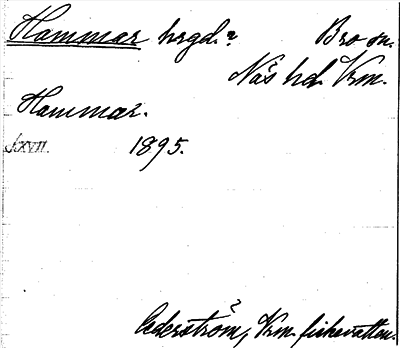 Hammar hrgd.? Bro sn.
Näs hd. Vrm.
Hammar.
1895.
Cederström, Vrm. fiskevatten.